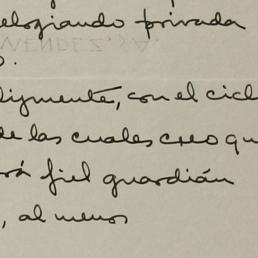 elogiando privada
o.
dignmente, con el cicl
de las cuales creo qu
rá fiel guardián
, al menos